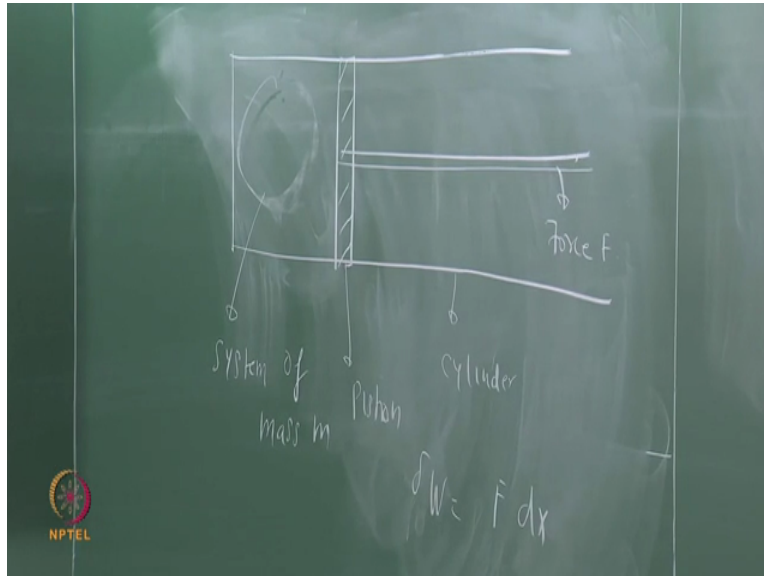 Force F
System of
mass m
Piston
Cylinder
δW = F dx
NPTEL